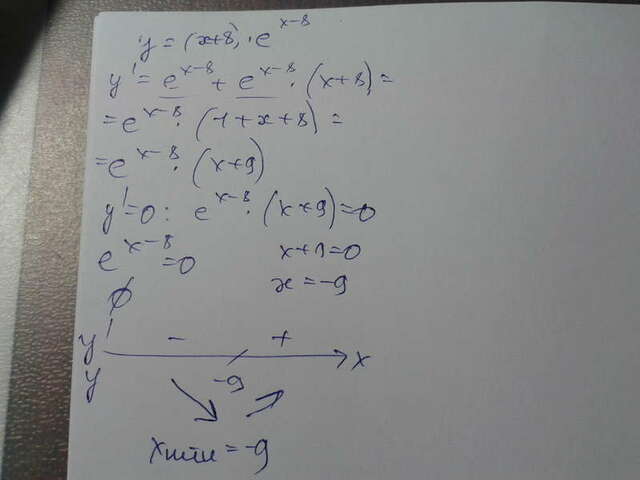 y = (x+8) · e^{x-8}
y' = e^{x-8} + e^{x-8} · (x+8) =
= e^{x-8} · (1+x+8) =
= e^{x-8} · (x+9)
y'=0 : e^{x-8} · (x+9)=0
e^{x-8} =0 x+9=0
∅ x=-9
y' - + x
y -9
xmin = -9